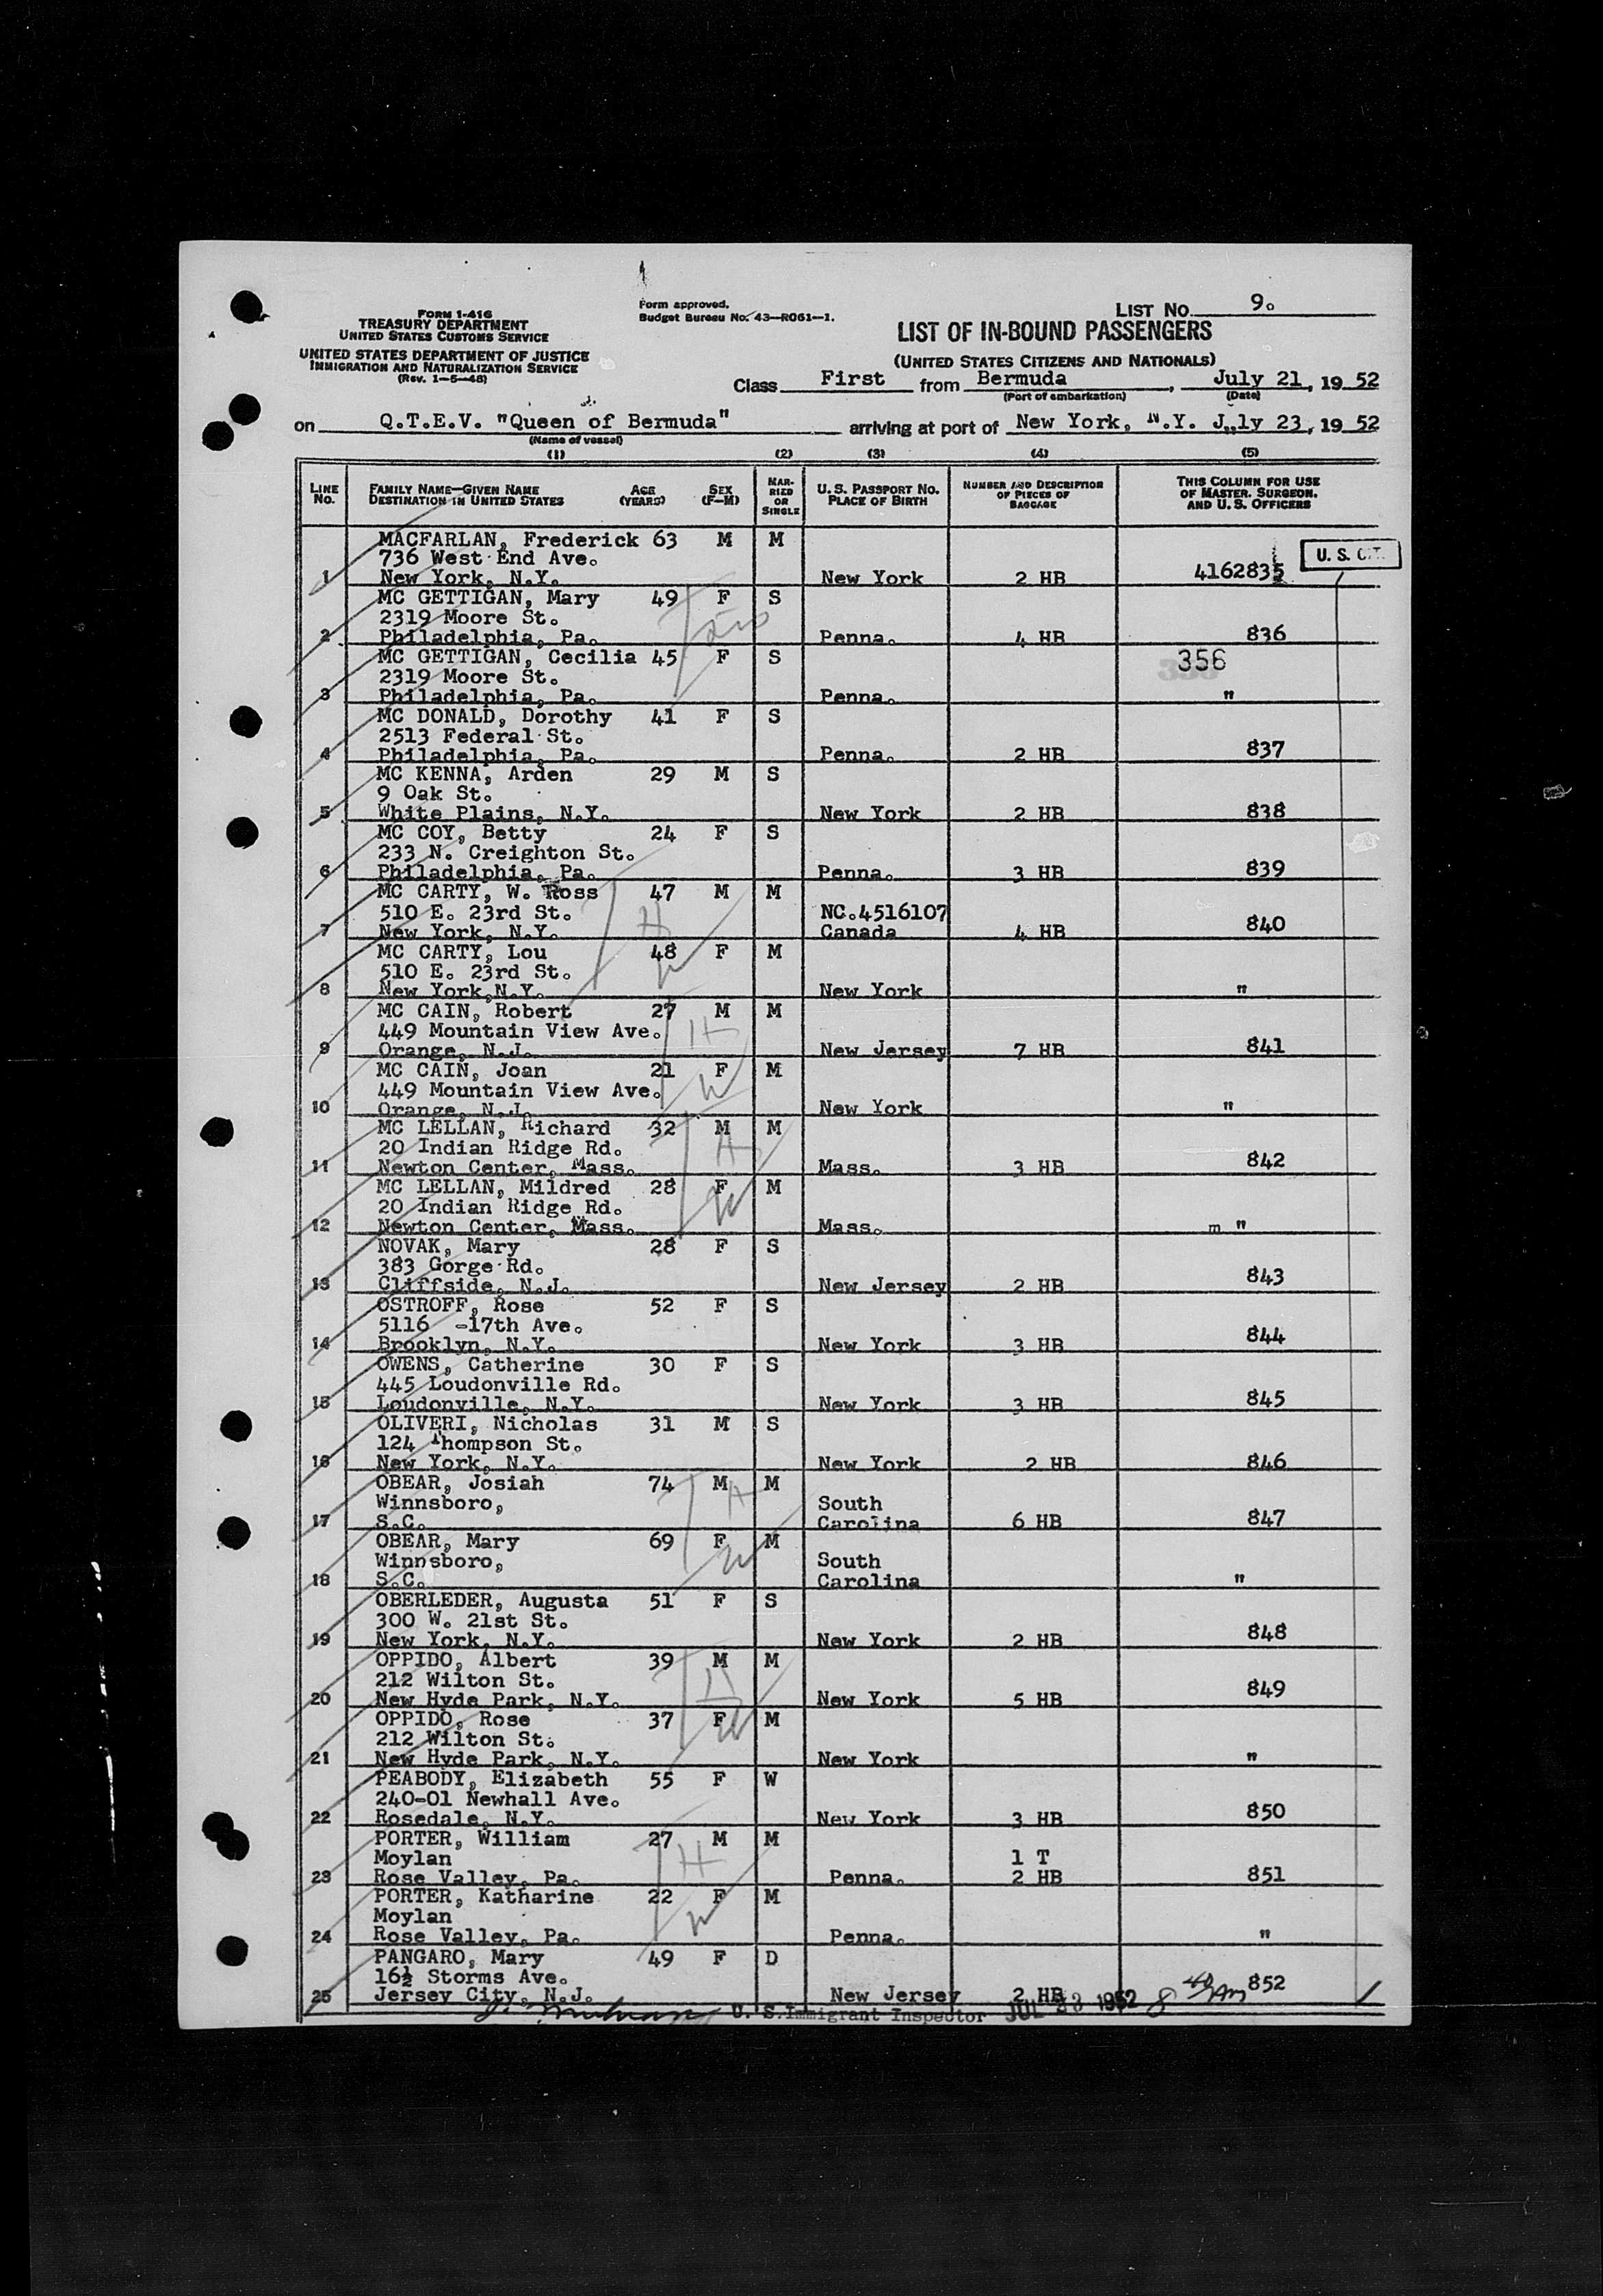 FORM I-416
TREASURY DEPARTMENT
UNITED STATES CUSTOMS SERVICE
UNITED STATES DEPARTMENT OF JUSTICE
IMMIGRATION AND NATURALIZATION SERVICE
(Rev. 1-5-48)
Form approved.
Budget Bureau No. 43-R061-1.
LIST NO. 9.
LIST OF IN-BOUND PASSENGERS
(UNITED STATES CITIZENS AND NATIONALS)
Class First from Bermuda, July 21, 19 52
(Port of embarkation) (Date)
on Q.T.E.V. "Queen of Bermuda" arriving at port of New York, N.Y. July 23, 19 52
(Name of vessel)
(1) (2) (3) (4) (5)
LINE NO. FAMILY NAME—GIVEN NAME DESTINATION IN UNITED STATES AGE (YEARS) SEX (F-M) MARRIED OR SINGLE U. S. PASSPORT NO. PLACE OF BIRTH NUMBER AND DESCRIPTION OF PIECES OF BAGGAGE THIS COLUMN FOR USE OF MASTER, SURGEON, AND U. S. OFFICERS
MACFARLAN, Frederick 63 M M
736 West End Ave. U. S. CIT.
1 New York, N.Y. New York 2 HB 4162835
MC GETTIGAN, Mary 49 F S
2319 Moore St.
2 Philadelphia, Pa. Penna. 4 HB 836
MC GETTIGAN, Cecilia 45 F S 356
2319 Moore St.
3 Philadelphia, Pa. Penna. "
MC DONALD, Dorothy 41 F S
2513 Federal St.
4 Philadelphia, Pa. Penna. 2 HB 837
MC KENNA, Arden 29 M S
9 Oak St.
5 White Plains, N.Y. New York 2 HB 838
MC COY, Betty 24 F S
233 N. Creighton St.
6 Philadelphia, Pa. Penna. 3 HB 839
MC CARTY, W. Ross 47 M M
510 E. 23rd St. NC.4516107
7 New York, N.Y. H Canada 4 HB 840
MC CARTY, Lou 48 F M
510 E. 23rd St. W
8 New York,N.Y. New York "
MC CAIN, Robert 27 M M
449 Mountain View Ave. H
9 Orange, N.J. New Jersey 7 HB 841
MC CAIN, Joan 21 F M
449 Mountain View Ave. W
10 Orange, N.J. New York "
MC LELLAN, Richard 32 M M
20 Indian Ridge Rd. H
11 Newton Center, Mass. Mass. 3 HB 842
MC LELLAN, Mildred 28 F M
20 Indian Ridge Rd. W
12 Newton Center, Mass. Mass. m "
NOVAK, Mary 28 F S
383 Gorge Rd.
13 Cliffside, N.J. New Jersey 2 HB 843
OSTROFF, Rose 52 F S
5116 -17th Ave.
14 Brooklyn, N.Y. New York 3 HB 844
OWENS, Catherine 30 F S
445 Loudonville Rd.
15 Loudonville, N.Y. New York 3 HB 845
OLIVERI, Nicholas 31 M S
124 Thompson St.
16 New York, N.Y. New York 2 HB 846
OBEAR, Josiah 74 M M
Winnsboro, H South
17 S.C. Carolina 6 HB 847
OBEAR, Mary 69 F M
Winnsboro, W South
18 S.C. Carolina "
OBERLEDER, Augusta 51 F S
300 W. 21st St.
19 New York, N.Y. New York 2 HB 848
OPPIDO, Albert 39 M M
212 Wilton St. H
20 New Hyde Park, N.Y. New York 5 HB 849
OPPIDO, Rose 37 F M
212 Wilton St. W
21 New Hyde Park, N.Y. New York "
PEABODY, Elizabeth 55 F W
240-01 Newhall Ave.
22 Rosedale, N.Y. New York 3 HB 850
PORTER, William 27 M M
Moylan H 1 T
23 Rose Valley, Pa. Penna. 2 HB 851
PORTER, Katharine 22 F M
Moylan W
24 Rose Valley, Pa. Penna. "
PANGARO, Mary 49 F D
16½ Storms Ave.
25 Jersey City, N.J. New Jersey 2 HB 852
U. S. Immigrant Inspector JUL 23 1952 8 40 AM